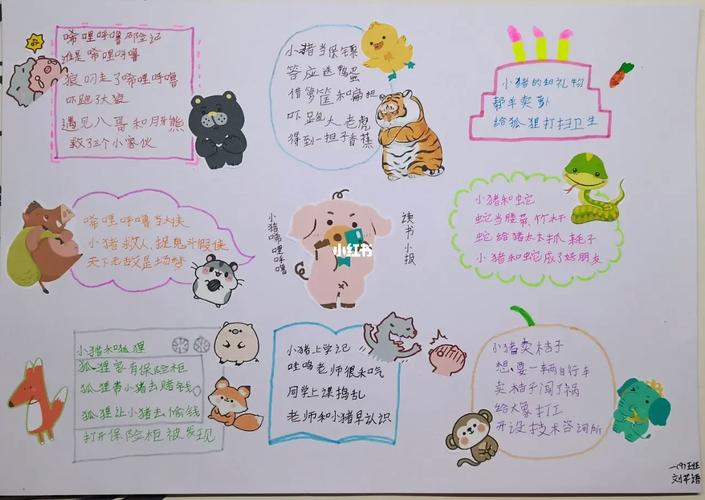 唏哩呼噜历险记
谁是唏哩呼噜
狼叼走了唏哩呼噜
吓跑了大狼
遇见八哥和月牙熊
救了三个小家伙
小猪当保镖
答应送鸭蛋
借箩筐和扁担
吓跑大老虎
得到一担子香蕉
小猪的礼物
帮羊卖
给狐狸打扫卫生
唏哩呼噜当大侠
小猪救人、捉鬼、斗假侠
天下无敌是场梦
小猪唏哩呼噜
读书小报
小红书
小猪和蛇
蛇当腰带、竹竿
蛇给猪太太抓耗子
小猪和蛇成了好朋友
小猪和狐狸
狐狸家有保险柜
狐狸带小猪去赌钱
狐狸让小猪去偷钱
打开保险柜被发现
小猪上学记
哇噜老师很和气
同学上课捣乱
老师和小猪早认识
小猪卖桔子
想要一辆自行车
卖桔子闯了祸
给大象打工
开设技术咨询所
一(9)班